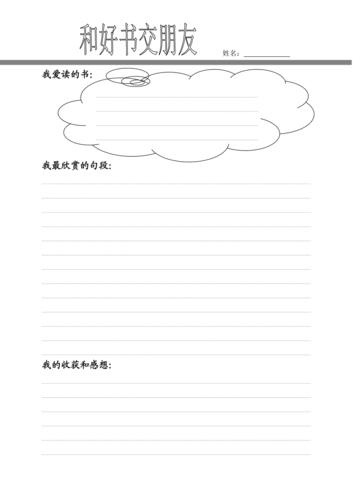 和好书交朋友
姓名:
我爱读的书:
我最欣赏的句段:
我的收获和感想: